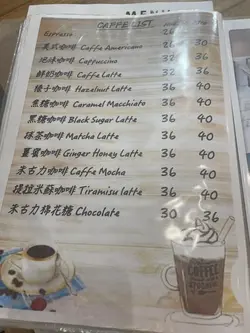 MENU
CAFFE LIST
Espresso 26
美式咖啡 Caffe Americano 26 30
泡沫咖啡 Cappuccino 32 36
鮮奶咖啡 Caffe Latte 32 36
榛子咖啡 Hazelnut Latte 36 40
焦糖咖啡 Caramel Macchiato 36 40
黑糖咖啡 Black Sugar Latte 36 40
抹茶咖啡 Matcha Latte 36 40
薑蜜咖啡 Ginger Honey Latte 36 40
朱古力咖啡 Caffe Mocha 36 40
提拉米蘇咖啡 Tiramisu latte 36 40
朱古力棉花糖 Chocolate 30 36
COFFEE